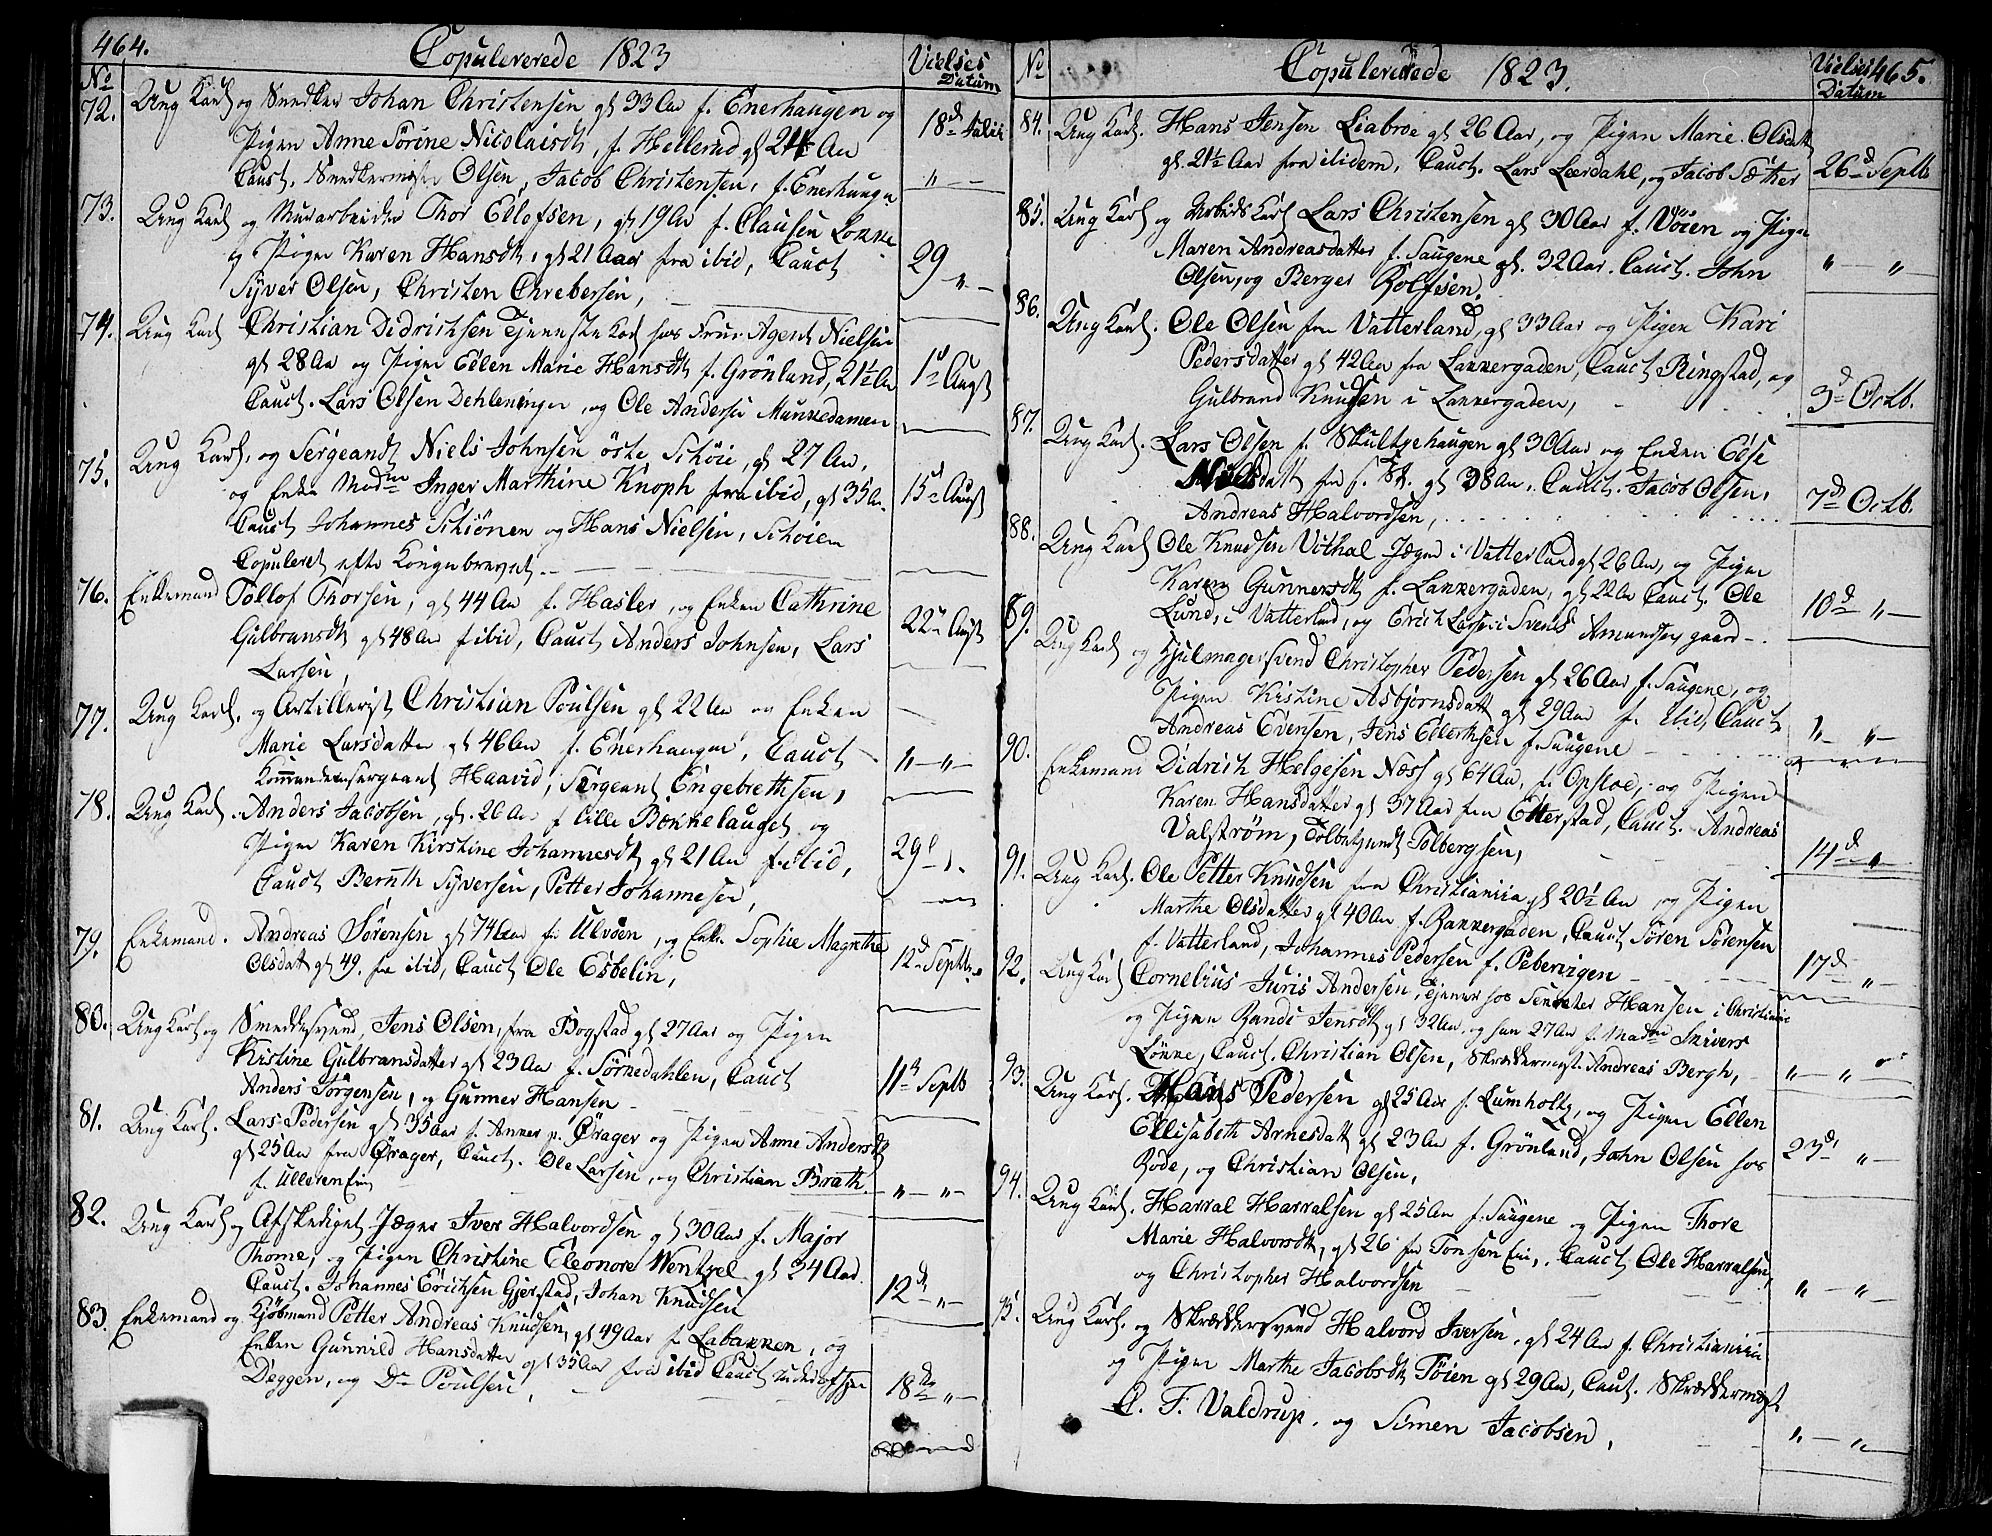 464.
Copulererede 1823
Vielses Datum
No
72. Ung Karl og Snedker Johan Christensen gl 33 Aar f. Enerhaugen og
Pigen Anne Sörine Nicolaisdt, f. Hellerud gl 21½ Aar
18d Julii
Cauct. Snedkermester Olsen, Jacob Christensen, f. Enerhaugen
" —
73. Ung Karl og Murarbeider Thor Ellofsen, gl 19 Aar f. Clausen Lökke
og Pigen Karen Hansdt, gl 21 Aar fra ibid, Cauct
29 — " —
Syver Olsen, Christen Chrebersen,
74. Ung Karl Christian Didrichsen Tjeneste Karl hos Frue Agent Nielsen
gl 28 Aar og Pigen Ellen Marie Hansdt f. Grönland, 21½ Aar
1d Augst
Cauct. Lars Olsen Dehleninger, og Ole Andersen Munkedamen
75. Ung Karl, og Sergeandt Niels Johnsen öste Schöie, gl 27 Aar,
og Enke Madme Inger Marthine Knoph fra ibid, gl 35 Aar
15d Augst
Cauct Johannes Schiönen og Hans Nielsen, Schöien
Copuleret efter Kongebrevet.
76. Enkemand Tollof Thorsen, gl 44 Aar f. Hasler, og Enken Cathrine
22d Augst
Gulbransdt gl 48 Aar f ibid, Cauct Anders Johnsen, Lars
Larsen,
77. Ung Karl, og Artillerist Christian Poulsen gl 22 Aar og Enken
Marie Larsdatter gl 46 Aar f. Enerhaugen, Cauct
" — " —
Kommandeersergeant Haavid, Sergeant Engebrethsen,
78. Ung Karl. Anders Jacobsen, gl. 26 Aar f lille Bekkelauget og
Pigen Karen Kirstine Johannesdt gl 21 Aar f. ibid,
29d " .
Cauct Bernth Syversen, Petter Johannesen,
79. Enkemand. Andreas Sörensen gl 74 Aar fra Ulvöen, og Enke Sophie Magrethe
12d Septb.
Olsdatt gl 49. fra ibid, Cauct Ole Esbelin,
80. Ung Karl og Smeddesvend, Jens Olsen, fra Bogstad gl 27 Aar og Pigen
Kistine Gulbransdatter gl 23 Aar f. Sörkedahlen, Cauct
11te Septb
Anders Jörgensen, og Gunner Hansen
81. Ung Karl. Lars Pedersen gl 35 Aar f. Anner p. Örager og Pigen Anne Andersdt
gl 25 Aar fra Örager, Cauct. Ole Larsen, og Christian Brath.
f. Ulleren Eie
" — " —
82. Ung Karl og Afskediget Jæger Iver Halvordsen gl 30 Aar f. Major
Thome, og Pigen Christine Eleonore Wentzel gl 24 Aar.
Cauct. Johannes Erichsen Gjerstad, Johan Knudsen
12d — " —
83. Enkemand og Kjöbmand Petter Andreas Knudsen, gl 49 Aar f. Labakken, og
Enken Gunnild Hansdatter gl 35 Aar fra ibid Cauct
Deggen, og Dr Poulsen,
18de " —
No
Copulererede 1823.
Vielses Datum
465.
84. Ung Karl. Hans Jensen Liabroe gl 26 Aar, og Pigen Marie Olsdatt
gl. 21½ Aar fra itidem, Cauct. Lars Leerdahl, og Jacob Sæther
26d Septb
85. Ung Karl og Arbeids Karl Lars Christensen gl 30 Aar f. Vöien og Pigen
Maren Andreasdatter f. Saugene gl. 32 Aar. Cauct. John
" — "
Olsen, og Berger Rolfsen.
86. Ung Karl. Ole Olsen fra Vatterland, gl 33 Aar og Pigen Kari
Pedersdatter gl 42 Aar fra Lakkergaden, Cauct Ringstad, og
3d Octb.
Gulbrand Knudsen i Lakkergaden,
87. Ung Karl. Lars Olsen f. Skultzehaugen gl 30 Aar og Enken Else
Nielsdatt fra f. St. gl 38 Aar. Cauct. Jacob Olsen,
7de Octb.
Andreas Halvordsen,
88. Ung Karl Ole Knudsen Vithal Jæger i Vatterland gl 26 Aar, og Pigen
Karen Gunnersdt f. Lakkergaden, gl 22 Aar Cauct. Ole
10d " —
Lund, i Vatterland, og Erich Larsen i Svends Amundsen gaard
89. Ung Karl og Hjulmagersvend Christopher Pedersen gl 26 Aar f. Saugene, og
Pigen Kistine Asbjörnsdatt gl 29 Aar f. ibid, Cauct
" — " —
Andreas Evensen, Jens Ellerthsen f. Saugene
90. Enkemand Didrich Helgesen Næss gl 64 Aar, f. Opsloe, og Pigen
Karen Hansdatter gl 37 Aar fra Etterstad, Cauct. Andreas
Valström, Tolbetjendt Tolbergsen,
14d — " —
91. Ung Karl. Ole Petter Knudsen fra Christiania gl 20½ Aar og Pigen
Marthe Olsdatter gl 40 Aar f. Bakkergaden, Cauct Sören Sörensen
f. Vatterland, Johannes Pedersen f. Pebervigen
17d " —
92. Ung Karl Cornelius Juris Andersen, Tjener hos Senater Hansen i Christiania
og Pigen Randi Jensdt gl 32 Aar, og han 27 Aar f. Madme Skivers
Lökke, Cauct. Christian Olsen, Skreddermest. Andreas Bergh,
" — " —
93. Ung Karl. Hans Pedersen gl 25 Aar f. Lumholtz, og Pigen Ellen
Ellisabeth Arnesdatt gl 23 Aar f. Grönland, John Olsen hos
23d " —
Rode, og Christian Olsen,
94. Ung Karl. Harral Harralsen gl 25 Aar f. Saugene og Pigen Thore
Marie Halvorsdt, gl 26 fra Tonsen Eie, Cauct Ole Harralsen,
og Christopher Halvordsen
" — " —
95. Ung Karl. og Skreddersvend Halvord Iversen. gl 24 Aar f. Christiania
og Pigen Marthe Jacobsdt Töien gl 29 Aar, Caut. Skreddermest
C. F. Valdrup. og Simen Jacobsen,
" — " —